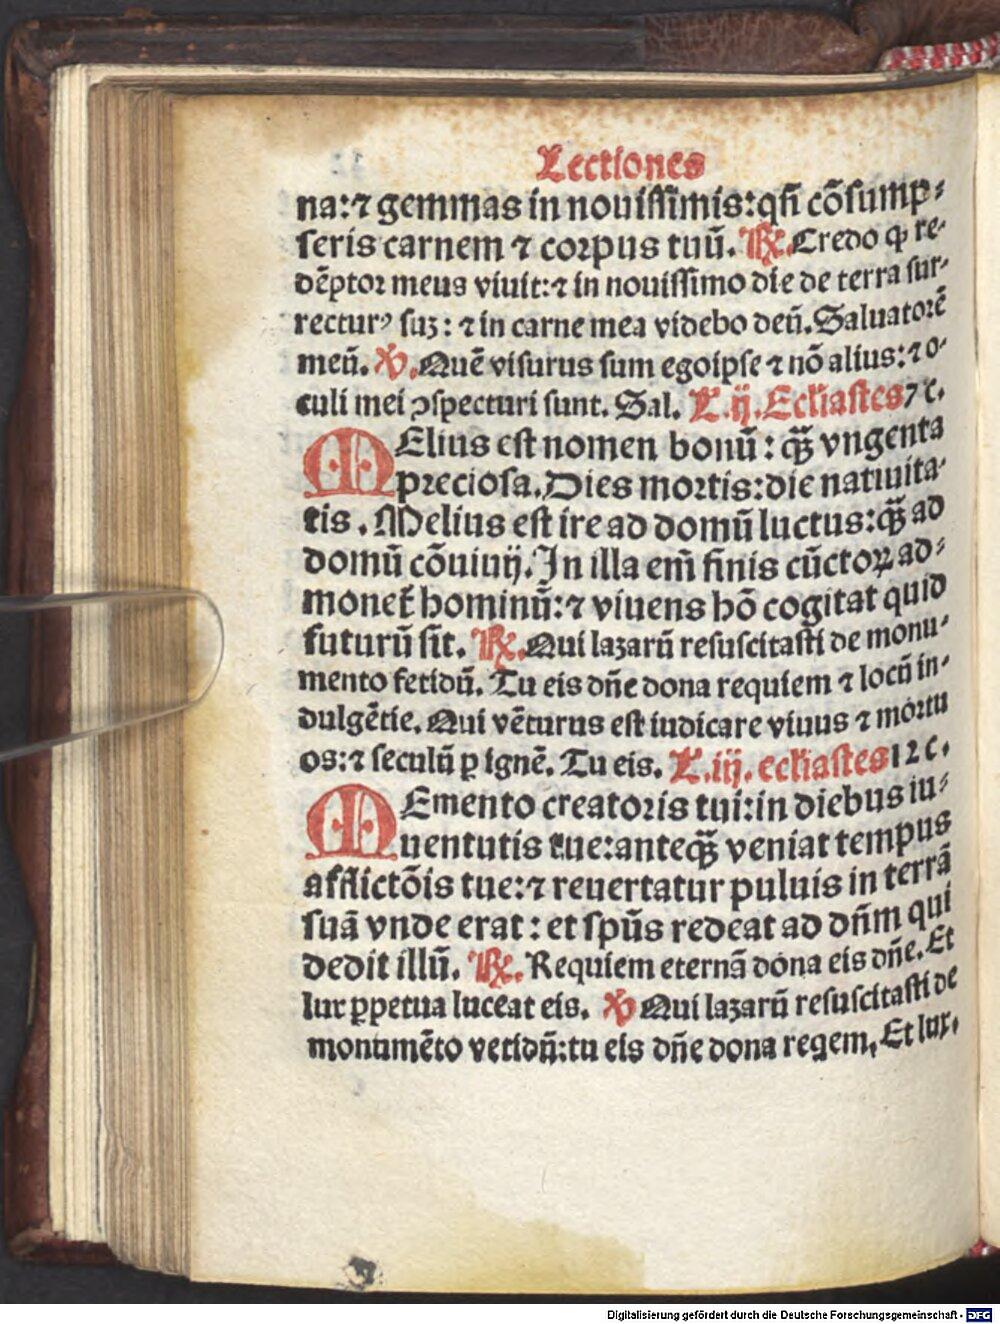 Lectiones
na:⁊ gemmas in nouissimis:qsi cōsump⸗
seris carnem ⁊ corpus tuū. ℞. Credo ꝙ re⸗
dēptor meus viuit:⁊ in nouissimo die de terra sur⸗
recturꝰ suꝫ: ⁊ in carne mea videbo deū. Saluatorē
meū. ℣. Quē visurus sum egoipse ⁊ nō alius:⁊ o⸗
culi mei ꝯspecturi sunt. Sal. L.ij. Eccl̄iastes 7 c.
MElius est nomen bonū: qꝫ̄ vngenta
preciosa. Dies mortis:die natiuita⸗
tis. Melius est ire ad domū luctus:qꝫ̄ ad
domū cōuiuij. In illa em̄ finis cūctoꝝ ad⸗
monet᷑ hominū:⁊ viuens hō cogitat quid
futurū sit. ℞. Qui lazarū resuscitasti de monu⸗
mento fetidū. Tu eis dn̄e dona requiem ⁊ locū in⸗
dulgētie. Qui vēturus est iudicare viuus ⁊ mortu
os:⁊ seculū ꝑ ignē. Tu eis. L.iij. eccl̄iastes 12 c.
MEmento creatoris tui:in diebus iu⸗
uentutis tue:anteqꝫ̄ veniat tempus
afflictōis tue:⁊ reuertatur puluis in terrā
suā vnde erat: et spūs redeat ad dn̄m qui
dedit illū. ℞. Requiem eternā dona eis dn̄e. Et
lux ꝑpetua luceat eis. ℣ Qui lazarū resuscitasti de
monumēto vetidū:tu eis dn̄e dona regem, Et lux.
Digitalisierung gefördert durch die Deutsche Forschungsgemeinschaft - DFG